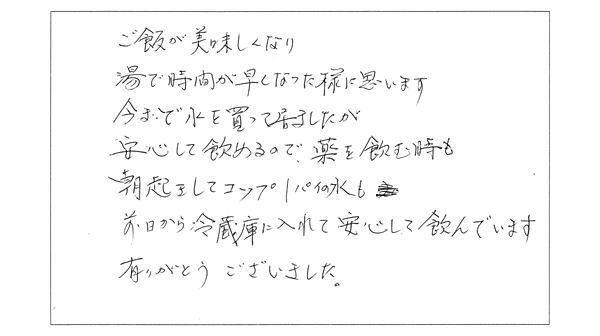 ご飯が美味しくなり
湯で時間が早しなった様に思います
今まで水を買って居ましたが
安心して飲めるので、薬を飲む時も
朝起きしてコップ1パイの水も
前日から冷蔵庫に入れて安心して飲んでいます
有りがとうございました。